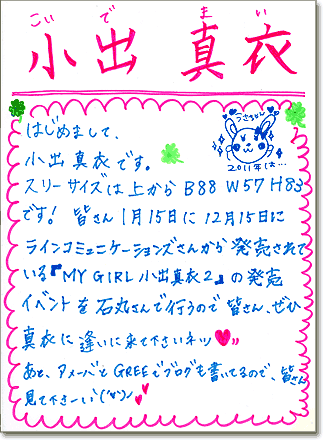 こい で ま い
小出 真衣
うさちゃん
2011年は…
はじめまして、
小出真衣です。
スリーサイズは上からB88 W57 H83
です! 皆さん1月15日に12月15日に
ラインコミュニケーションズさんから発売されて
いる『MY GIRL 小出真衣2』の発売
イベントを石丸さんで行うので皆さん、ぜひ
真衣に逢いに来て下さいネッ♥♥〃
あと、アメーバとGREEでブログも書いてるので、皆さん
見て下さーい\(^∀^)ノ♥